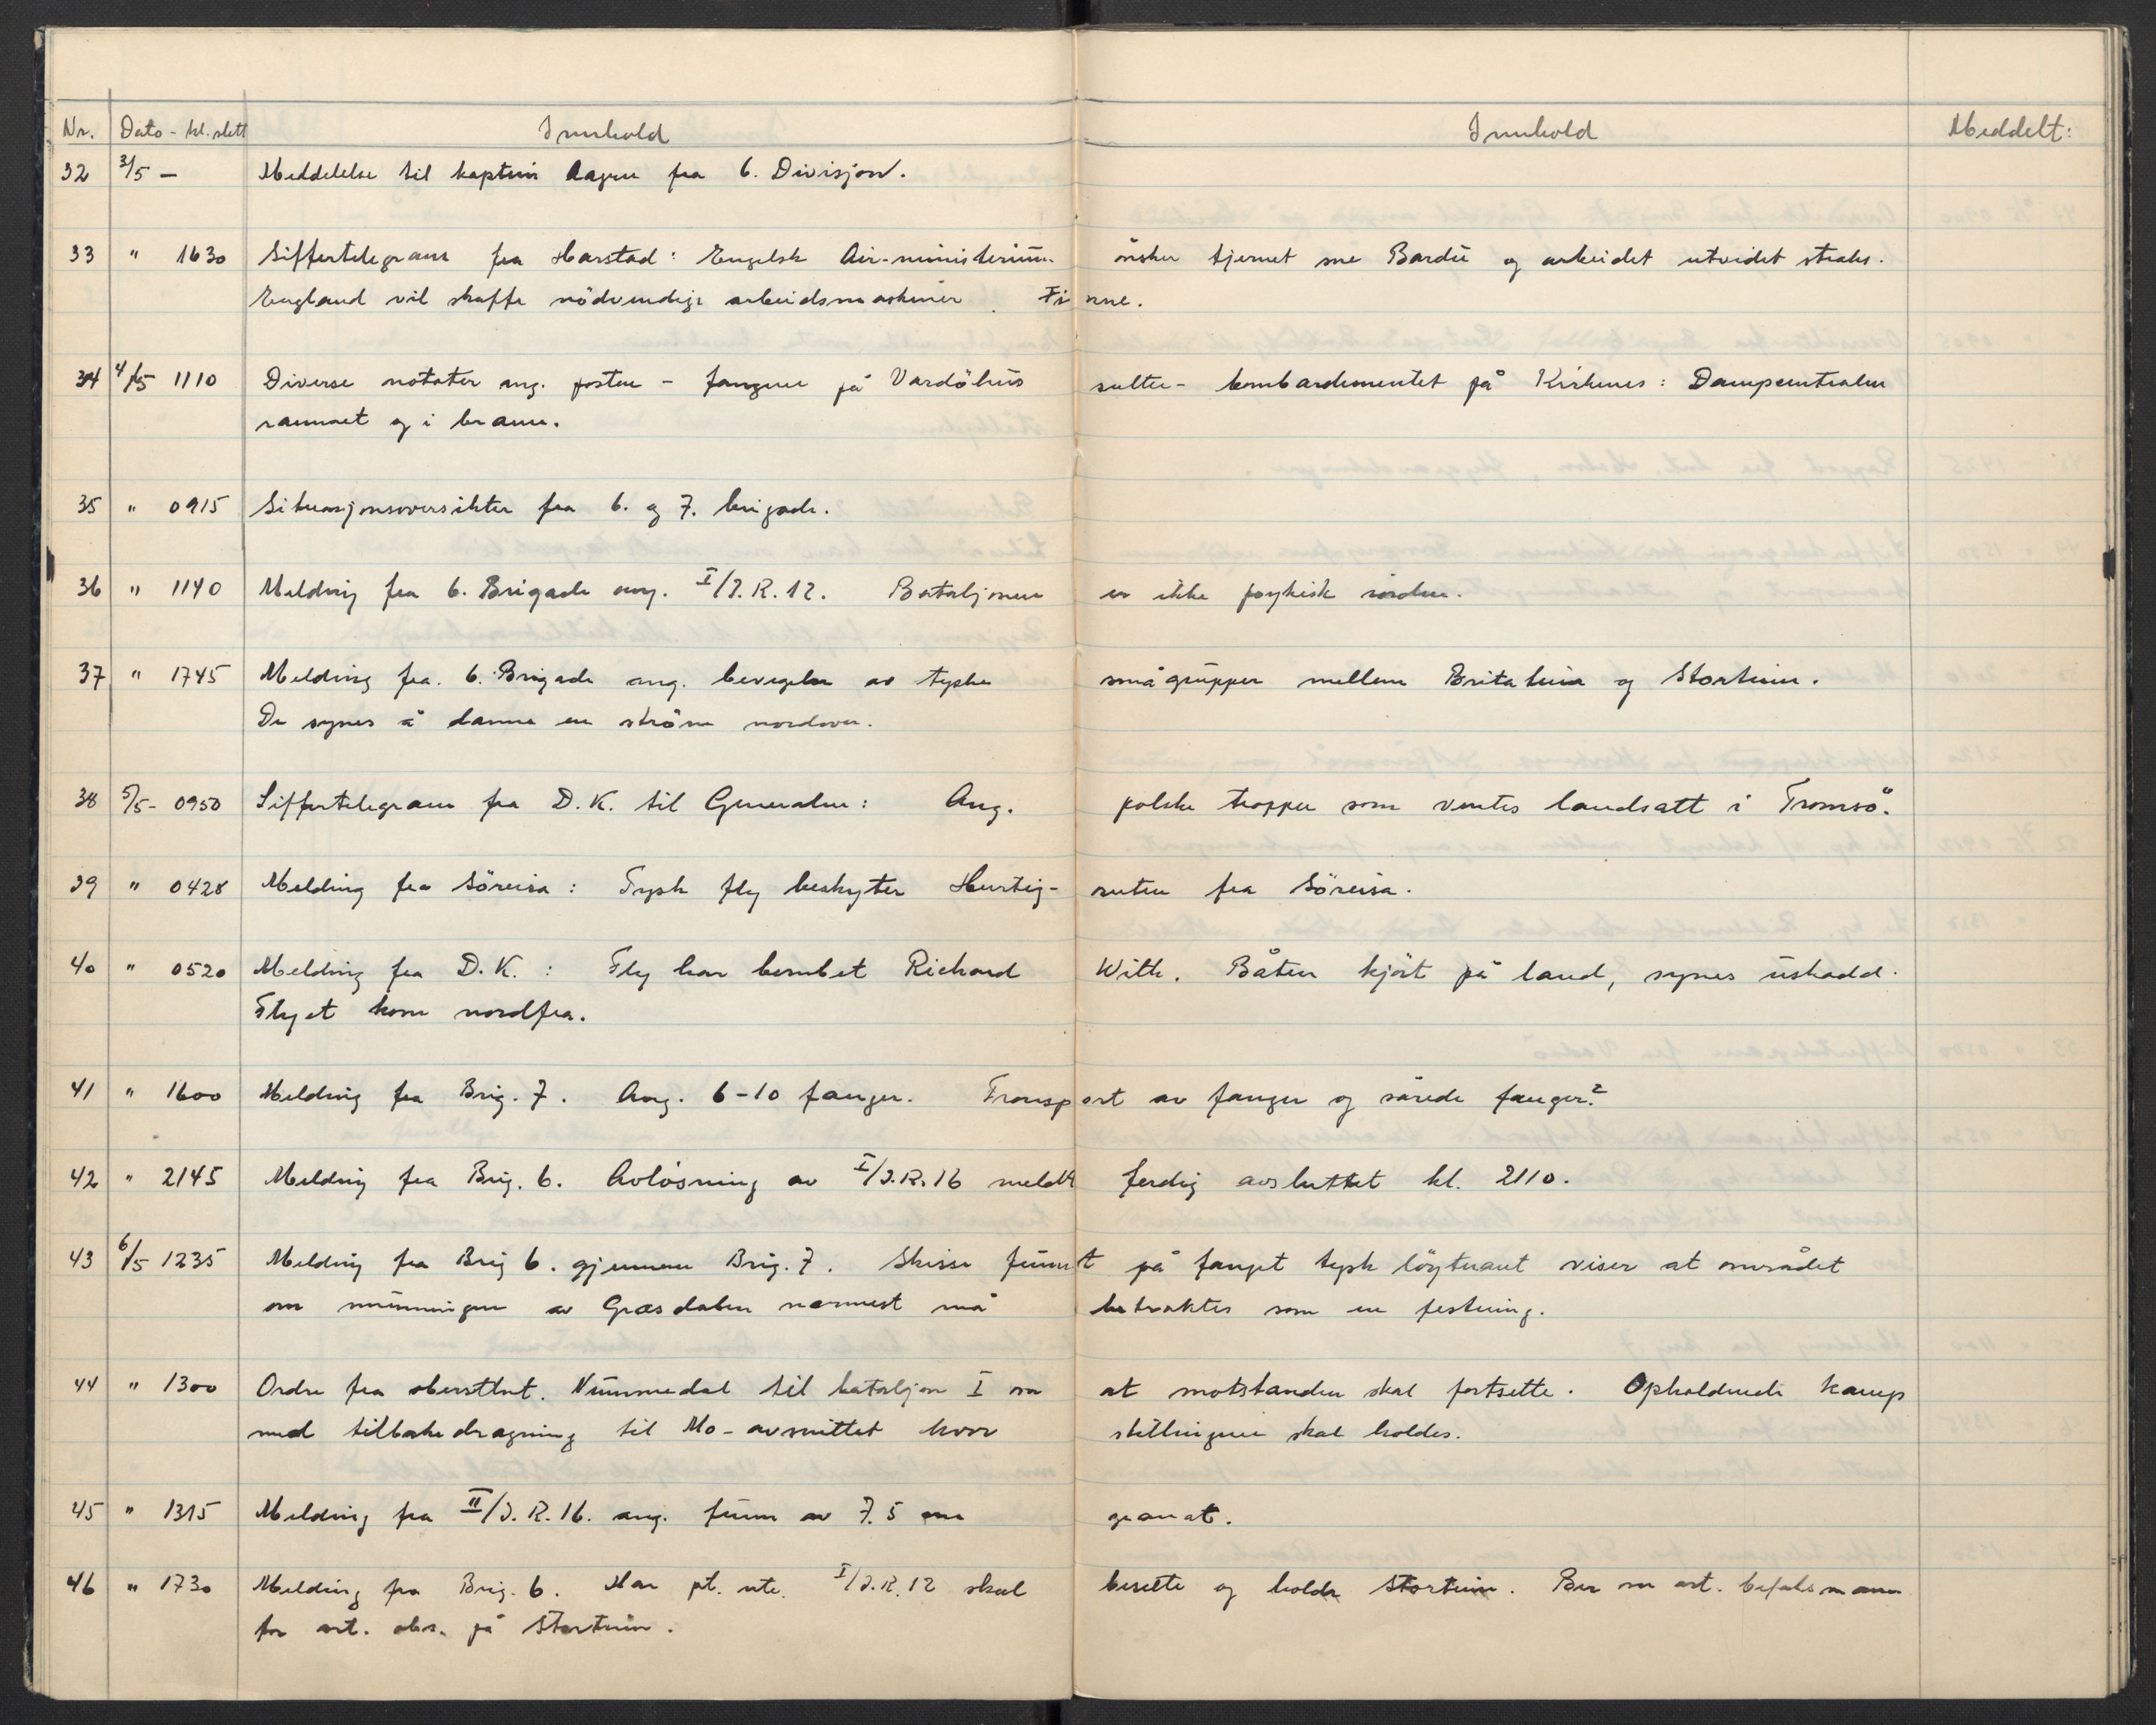 Nr. Dato - kl.slett Innhold Innhold Meddelt:
32 3/5 — Meddelelse til kaptein Aagen fra 6. Divisjon.
33 " 1630 Siffertelegram fra Harstad: Engelsk Air-ministerium ønsker fjernet sne Bardu og arbeidet utvidet straks.
England vil skaffe nödvendige arbeidsmaskiner. Finne.
34 4/5 1110 Diverse notater ang. posten - fangene på Vardöhus sulter - bombardementet på Kirkenes: Dampcentralen
rammet og i brann.
35 " 0915 Situasjonsoversikter fra 6. og 7. brigade.
36 " 1140 Melding fra 6. Brigade ang. I/I.R.12. Bataljonen er ikke psykisk iorden.
37 " 1745 Melding fra 6. Brigade ang. bevegelse av tyske smågrupper mellem Britatind og Stortind.
De synes å danne en ström nordover.
38 5/5- 0950 Siffertelegram fra D.K. til Generalen: Ang. polske tropper som ventes landsatt i Tromsö.
39 " 0428 Melding fra Söreisa: Tysk fly beskyter Hurtig- ruten fra Söreisa.
40 " 0520 Melding fra D.K.: Fly har bombet Richard With. Båten kjört på land, synes uskadd.
Flyet kom nordfra.
41 " 1600 Melding fra Brig. 7. Ang. 6-10 fanger. Transport av fanger og sårede fanger?
42 " 2145 Melding fra Brig. 6. Avlösning av I/I.R.16 meldt ferdig avsluttet kl. 2110.
43 6/5 1235 Melding fra Brig 6. gjennem Brig. 7. Skisse funnet på fanget tysk löytnant viser at området
om munningen av Græsdalen nærmest må betraktes som en festning.
44 " 1300 Ordre fra oberstlnt. Nummedal til bataljon I om at motstanden skal fortsette. Opholdende kamp
med tilbakedragning til Mo-avsnittet hvor stillingene skal holdes.
45 " 1315 Melding fra II/I.R.16. ang. funn av 7.5 cm granat.
46 " 1730 Melding fra Brig. 6. Har pt. ute. I/I.R.12 skal besette og holde Stortind. Ber om art. befalsmann
for art. obs. på Stortind.